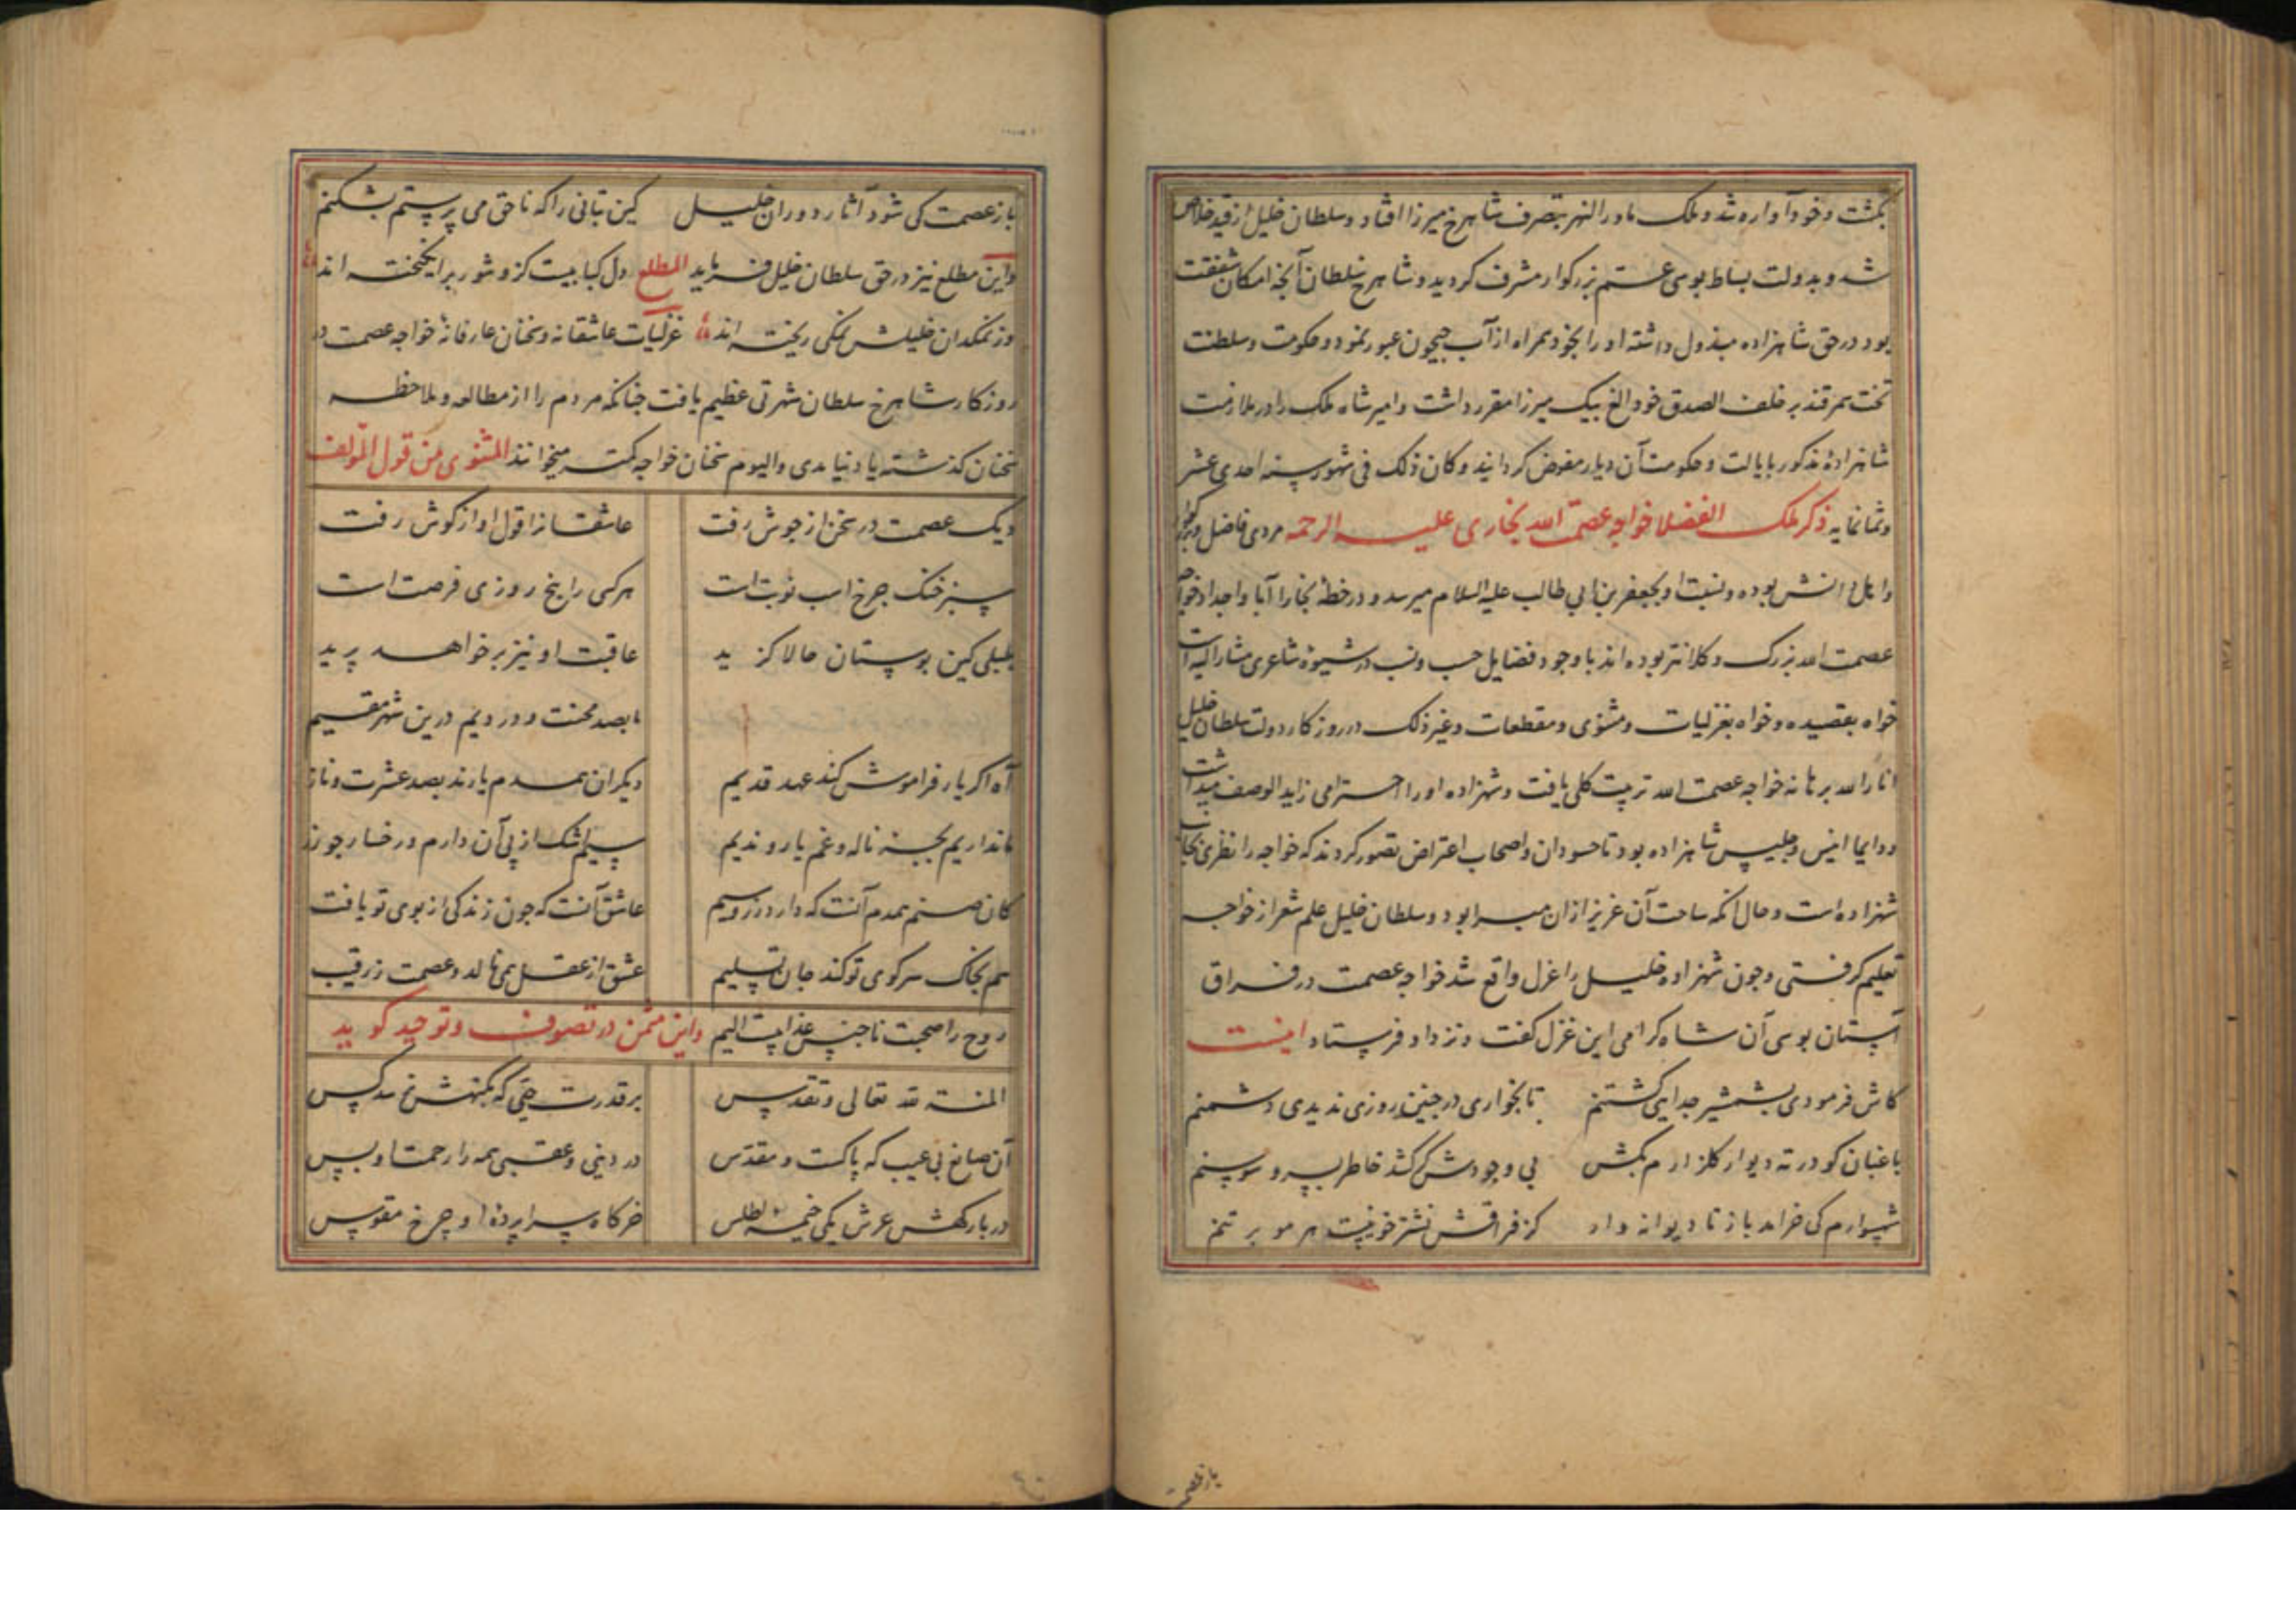 بکشت و خود آواره شد و ملک ماورالنهر بتصرف شاهرخ میرزا افتاد و سلطان خلیل از قید خلاص
شد و بدولت بساط بوسی عم بزرکوار مشرف کردید و شاهرخ سلطان آنچه امکان شفقت
بود در حق شاهزاده مبذول داشته او را بخود همراه از آب جیحون عبور نمود و حکومت و سلطنت
تخت سمرقند بر خلف الصدق خود الغ بیک میرزا مقرر داشت و امیر شاه ملک را در ملازمت
شاهزاده مذکور بایالت و حکومت آن دیار مفوض کردانید و کان ذلک فی شهور سنه احدی عشر
و ثمانمایه ذکر ملک الفضلا خواجه عصمت الله بخاری علیه الرحمه مردی فاضل و بزرکوار
و اهل دانش بوده و نسبت او بجعفر بن ابی طالب علیه السلام میرسد و در خطه بخارا آبا و اجداد خواجه
عصمت الله بزرک و کلانتر بوده اند با وجود فضایل حسب و نسب در شیوه شاعری مشارالیه است
خواه بقصیده و خواه بغزلیات و مثنوی و مقطعات و غیر ذلک در روزکار دولت سلطان خلیل
انار الله برهانه خواجه عصمت الله تربیت کلی یافت و شهزاده او را احترامی زاید الوصف میداشت
و دایما انیس و جلیس شاهزاده بود تا حسودان و اصحاب اعتراض تصور کردند که خواجه را نظری بجانب
شهزاده است و حال آنکه ساحت آن عزیز ازان مبرا بود و سلطان خلیل علم شعر از خواجه
تعلیم کرفتی و چون شهزاده خلیل را عزل واقع شد خواجه عصمت در فراق
آستان بوسی آن شاه کرامی این غزل کفت و نزد او فرستاد اینست
کاش فرمودی بشمشیر جدایی کشتنم تا بخواری در چنین روزی ندیدی دشمنم
باغبان کو در ته دیوار کلزارم بکش بی وجودش کر کشد خاطر بسرو و سوسنم
شهسوارم کی خرامد باز تا دیوانه وار کز فراقش نشتر خونیست هر مو بر تنم
باز عصمت
باز عصمت کی شود آثار دوران خلیل کین بتانی را که ناحق می پرستم بشکنم
و این مطلع نیز در حق سلطان خلیل فرماید المطلع دل کبابیست کزو شور برانکیخته اند
وز نمکدان خلیلش نمکی ریخته اند غزلیات عاشقانه و سخنان عارفانه خواجه عصمت در
روزکار شاهرخ سلطان شهرتی عظیم یافت چنانکه مردم را از مطالعه و ملاحظه
سخنان کذشته یاد نیامدی و الیوم سخنان خواجه کمتر میخوانند المثنوی من قول المولف
دیک عصمت در سخن از جوش رفت عاشقانرا قول او از کوش رفت
سبز خنک چرخ اسب نوبت است هر کسی را پنج روزی فرصت است
بلبلی کین بوستان حالا کزید عاقبت او نیز برخواهد پرید
ما بصد محنت و دردیم درین شهر مقیم
آه اکر یار فراموش کند عهد قدیم دیکران همدم یارند بصد عشرت و ناز
ما نداریم بجز ناله و غم یار و ندیم سیل اشک از پی آن دارم و رخسار چو زر
کان صنم همدم آنست که دارد زر و سیم عاشق آنست که چون زندکی از بوی تو یافت
هم بخاک سر کوی تو کند جان تسلیم عشق از عقل همی نالد و عصمت ز رقیب
روح را صحبت ناجنس عذابیست الیم و این مثمن در تصوف و توحید کوید
المنة لله تعالی و تقدس بر قدرت حیی که بکنهش نرسد کس
آن صانع بی عیب که پاکست و مقدس در دینی و عقبی همه را رحمت او بس
در بارکهش عرش یکی خیمه اطلس خرکاه سراپرده او چرخ مقوس